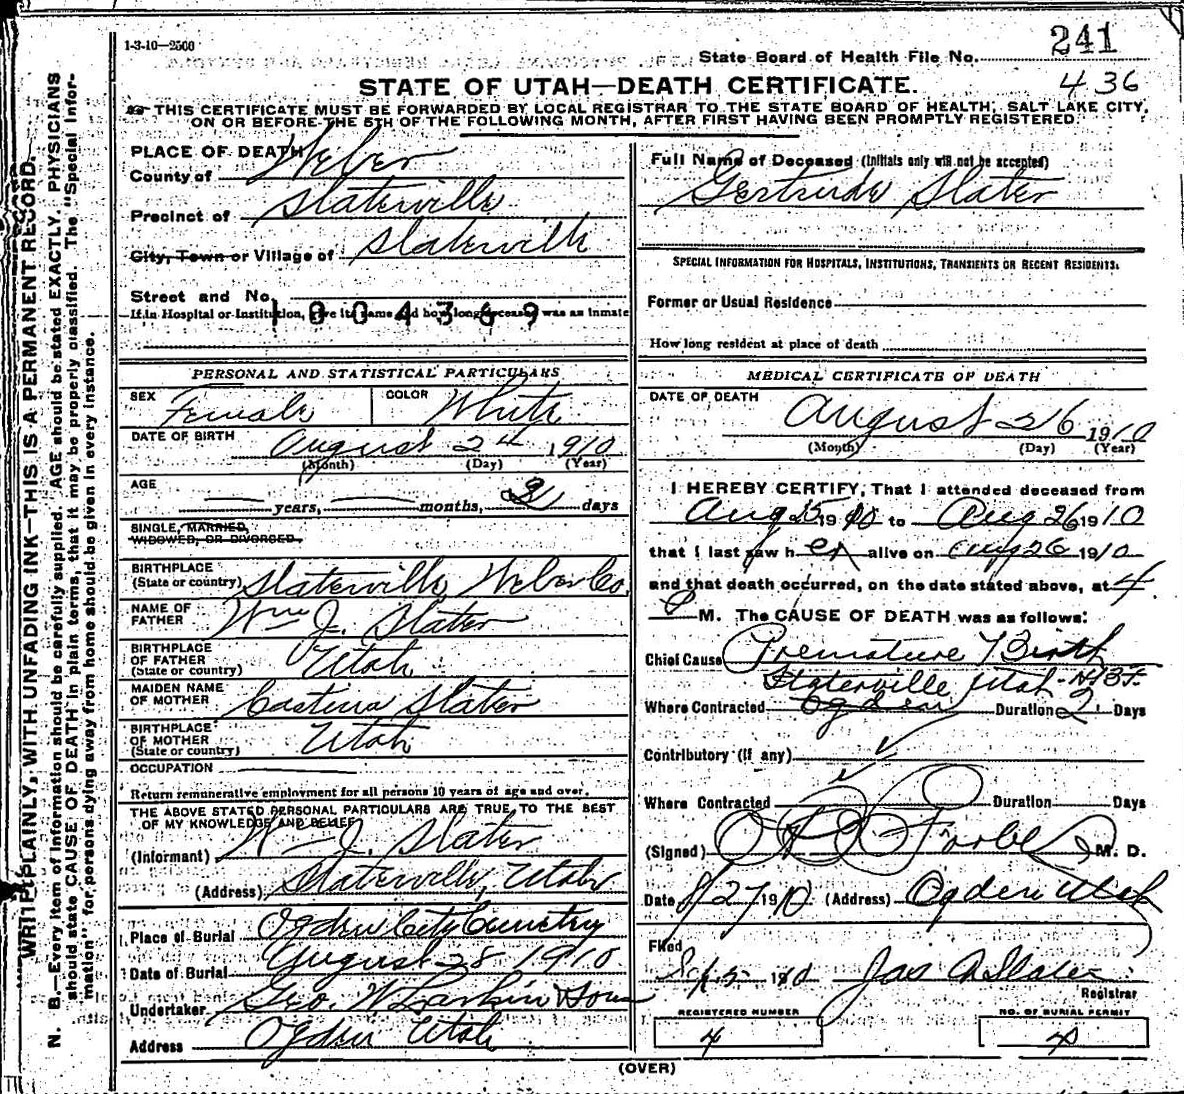 1-3-10—2500
241
State Board of Health File No.
436
STATE OF UTAH—DEATH CERTIFICATE.
THIS CERTIFICATE MUST BE FORWARDED BY LOCAL REGISTRAR TO THE STATE BOARD OF HEALTH, SALT LAKE CITY,
ON OR BEFORE THE 5TH OF THE FOLLOWING MONTH, AFTER FIRST HAVING BEEN PROMPTLY REGISTERED.
WRITE PLAINLY, WITH UNFADING INK—THIS IS A PERMANENT RECORD.
N. B.—Every item of information should be carefully supplied. AGE should be stated EXACTLY. PHYSICIANS
should state CAUSE OF DEATH in plain terms, that it may be properly classified. The "Special Infor-
mation" for persons dying away from home should be given in every instance.
PLACE OF DEATH
County of Weber
Precinct of Slaterville
City, Town or Village of Slaterville
Street and No.
1004369
If in Hospital or Institution, give its name and how long deceased was as inmate
PERSONAL AND STATISTICAL PARTICULARS
SEX Female COLOR White
DATE OF BIRTH August 24 1910
(Month) (Day) (Year)
AGE
years, months, days
SINGLE, MARRIED,
WIDOWED, OR DIVORCED.
BIRTHPLACE
(State or country) Slaterville, Weber Co.
NAME OF
FATHER Wm J. Slater
BIRTHPLACE
OF FATHER
(State or country) Utah
MAIDEN NAME
OF MOTHER Slater
BIRTHPLACE
OF MOTHER
(State or country) Utah
OCCUPATION
Return remunerative employment for all persons 10 years of age and over.
THE ABOVE STATED PERSONAL PARTICULARS ARE TRUE TO THE BEST
OF MY KNOWLEDGE AND BELIEF
(Informant) Wm J. Slater
(Address) Slaterville, Utah
Place of Burial Ogden City Cemetery
Date of Burial August 28 1910
Undertaker Geo. W Larkin & Sons
Address Ogden Utah
Full Name of Deceased (Initials only will not be accepted)
Gertrude Slater
SPECIAL INFORMATION FOR HOSPITALS, INSTITUTIONS, TRANSIENTS OR RECENT RESIDENTS.
Former or Usual Residence
How long resident at place of death
MEDICAL CERTIFICATE OF DEATH
DATE OF DEATH August 26 1910
(Month) (Day) (Year)
I HEREBY CERTIFY, That I attended deceased from
Aug 25 1910 to Aug 26 1910
that I last saw her alive on Aug 26 1910
and that death occurred, on the date stated above, at 4
P M. The CAUSE OF DEATH was as follows:
Chief Cause Premature Birth
Slaterville Utah
Where Contracted Ogden Duration 2 Days
Contributory (if any)
Where Contracted Duration Days
(Signed) Forbes M. D.
Date 8/27 1910 (Address) Ogden Utah
Filed
Sept 5 1910 Jas A Slater
Registrar
REGISTERED NUMBER
4
NO. OF BURIAL PERMIT
4
(OVER)